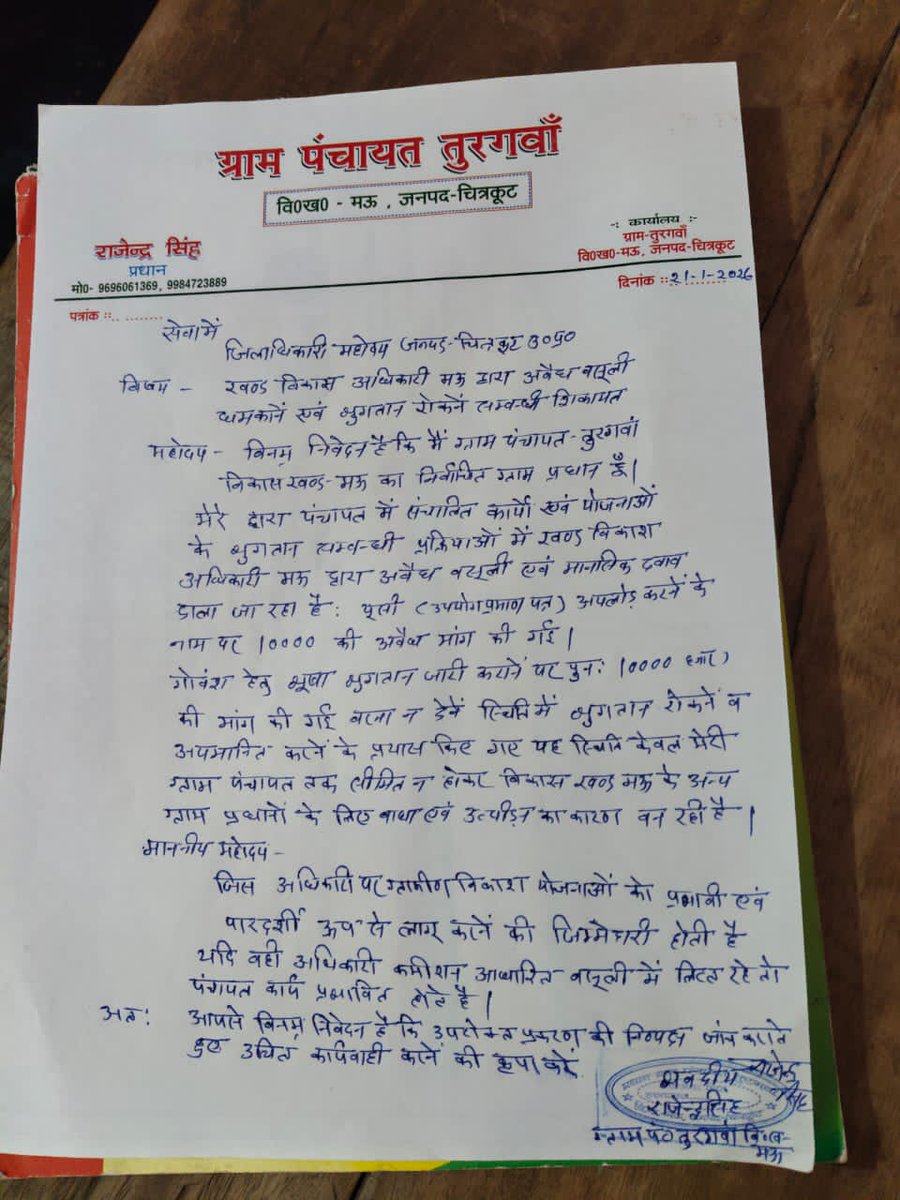 ग्राम पंचायत तुरगवाँ
वि0ख0 - मऊ , जनपद-चित्रकूट
राजेन्द्र सिंह
प्रधान
मो0- 9696061369, 9984723889
-: कार्यालय :-
ग्राम-तुरगवाँ
वि0ख0-मऊ, जनपद-चित्रकूट
पत्रांक :.. ........
दिनांक :: 21-1-2026
सेवामें
जिलाधिकारी महोदय जनपद-चित्रकूट उ०प्र०
विषय - खण्ड विकास अधिकारी मऊ द्वारा अवैध वसूली
धमकानें एवं भुगतान रोकनें सम्बन्धी शिकायत
महोदय - विनम्र निवेदन है कि मैं ग्राम पंचायत- तुरगवां
विकास खण्ड-मऊ का निर्वाचित ग्राम प्रधान हूँ।
मेरे द्वारा पंचायत में संचालित कार्यो एवं योजनाओं
के भुगतान सम्बन्धी प्रक्रियाओं में खण्ड विकाश
अधिकारी मऊ द्वारा अवैध वसूली एवं मानसिक दवाव
डाला जा रहा है : यूसी (उपयोग प्रमाण पत्र) अपलोड़ करनें के
नाम पर 10000 की अवैध मांग की गई।
गोवंश हेतु भूषा भुगतान जारी करानें पर पुन: 10000
की मांग की गई न देनें स्थिति में भुगतान रोकनें व
अपमानित करनें के प्रयास किए गए यह स्थिति केवल मेरी
ग्राम पंचायत तक सीमित न होकर विकास खण्ड मऊ के अन्य
ग्राम प्रधानों के लिए वाधा एवं उत्पीड़न का कारण वन रही है।
माननीय महोदय -
जिस अधिकारी पर ग्रामीण विकाश योजनाओं को प्रभावी एवं
पारदर्शी रूप से लागू करनें की जिम्मेदारी होती है
यदि वही अधिकारी कमीशन आधारित वसूली में लिप्त रहे तो
पंचायत कार्य प्रभावित होते है।
अत: आपसे विनम्र निवेदन है कि उपरोक्त प्रकरण की निष्पक्ष जांच कराते
हुए उचित कार्यवाही करनें की कृपा करें
भवदीय
राजेन्द्र सिंह
राजेन्द्र सिंह
ग्राम पं० तुरगवां वि०ख०-
मऊ